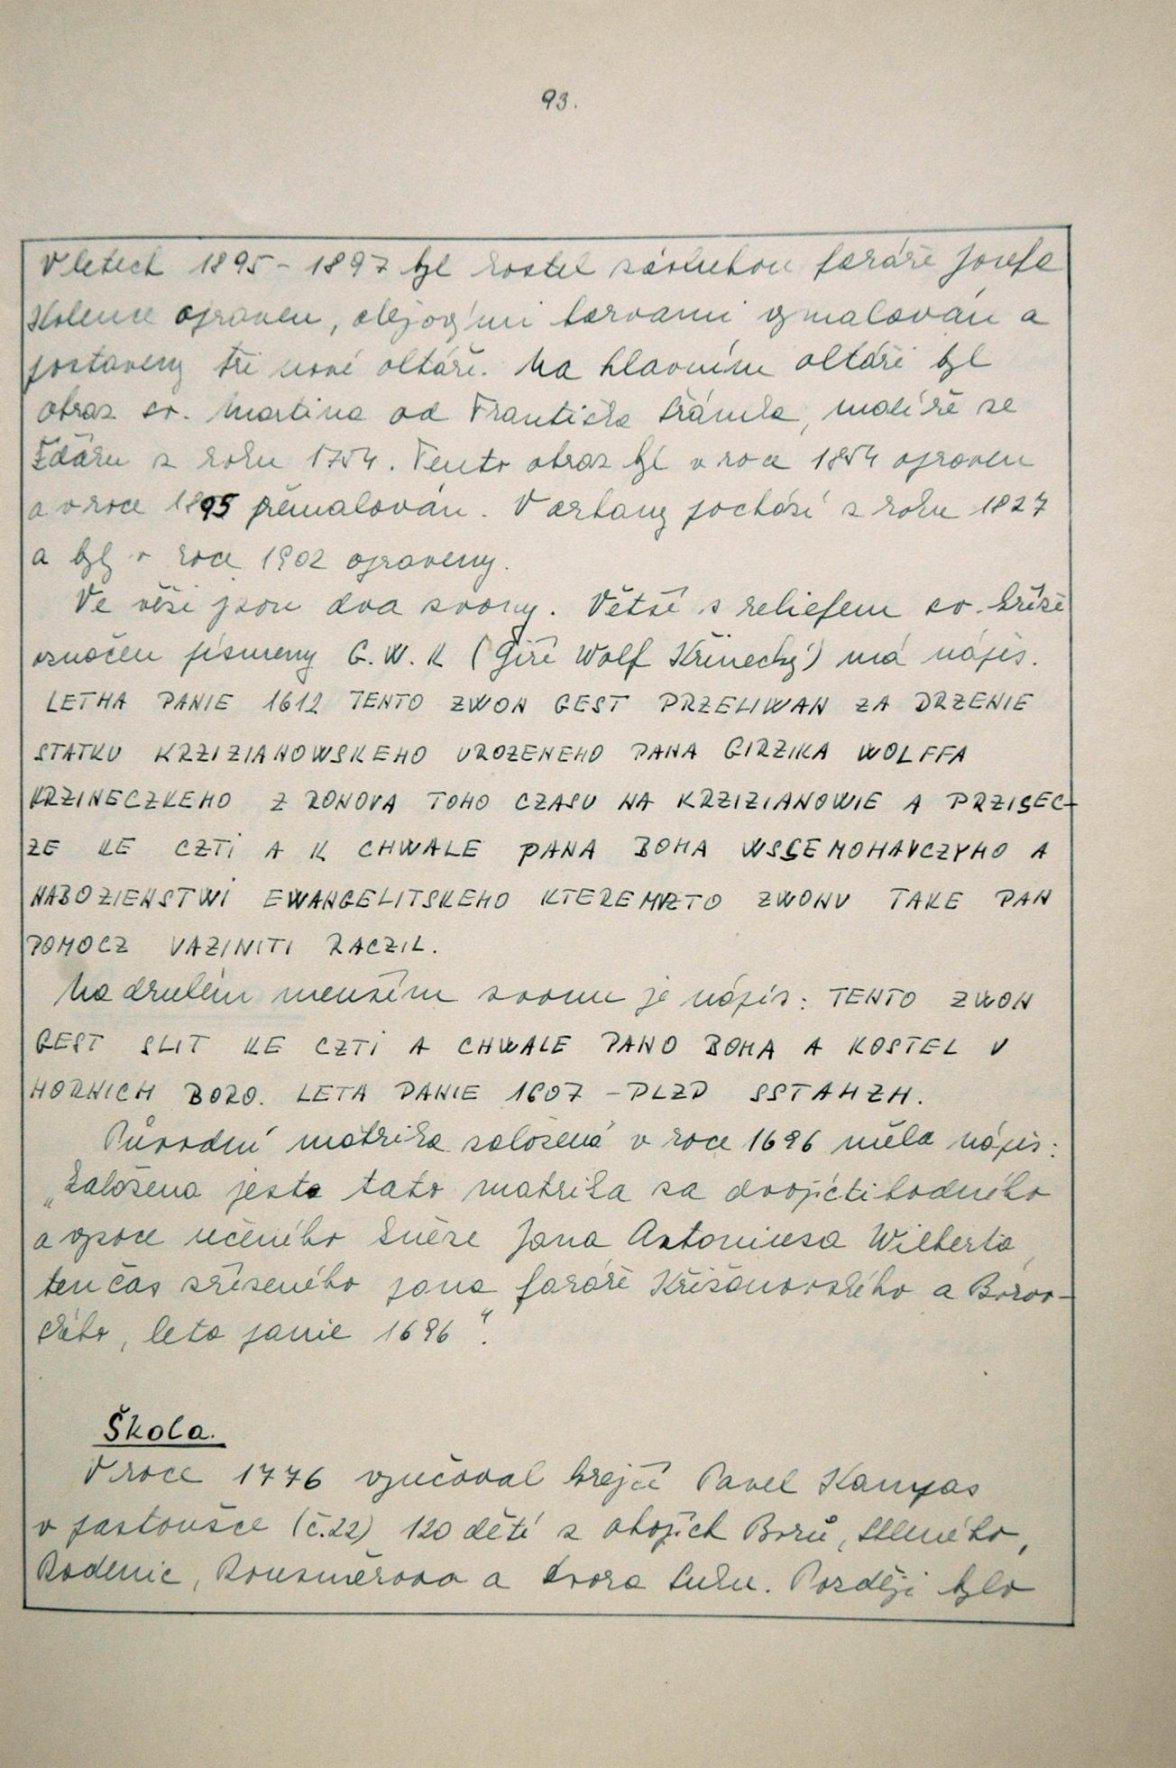 93.
V letech 1895 - 1897 byl kostel zásluhou faráře Josefa
opraven, olejovými barvami vymalován a
postaveny tři nové oltáře. Na hlavním oltáři byl
obraz sv. Martina od Františka malíře ze
Žďáru z roku 1754. Tento obraz byl v roce 1854 opraven
a v roce 1895 přemalován. Varhany pochází z roku 1827
a byly v roce 1902 opraveny.
Ve věži jsou dva zvony. Větší s reliefem sv. kříže
označen písmeny G. W. K (Jiří Wolf Křinecký) má nápis.
LETHA PANIE 1612 TENTO ZWON GEST PRZELIWAN ZA DRZENIE
STATKU KRZIZIANOWSKEHO UROZENEHO PANA GIRZIKA WOLFFA
KRZINECZKEHO Z RONOVA TOHO CZASU NA KRZIZIANOWIE A PRZISEC-
ZE KE CZTI A K CHWALE PANA BOHA WSSEMOHAUCZYHO A
NABOZIENSTWI EWANGELITSKEHO KTEREMUZTO ZWONU TAKE PAN
POMOCZ VAZINITI RACZIL.
Na druhém menším zvonu je nápis: TENTO ZWON
GEST SLIT KE CZTI A CHWALE PANO BOHA A KOSTEL V
HORNICH BORO. LETA PANIE 1607 - PLZD SSTAHZH.
Původní matrika založená v roce 1696 měla nápis:
„Založena jesta tato matrika za dvojictihodného
a vysoce učeného kněze Jana Antoniusa Wilberta,
ten čas zřízeného pana faráře Křižanovského a Borov-
ského, leta panie 1696“.
Škola.
V roce 1776 vyučoval krejčí Pavel Kampas
v pastoušce (č.22) 120 dětí z obojích Borů, Skleného,
Radenic, Rousměrova a dvora Suku. Později bylo